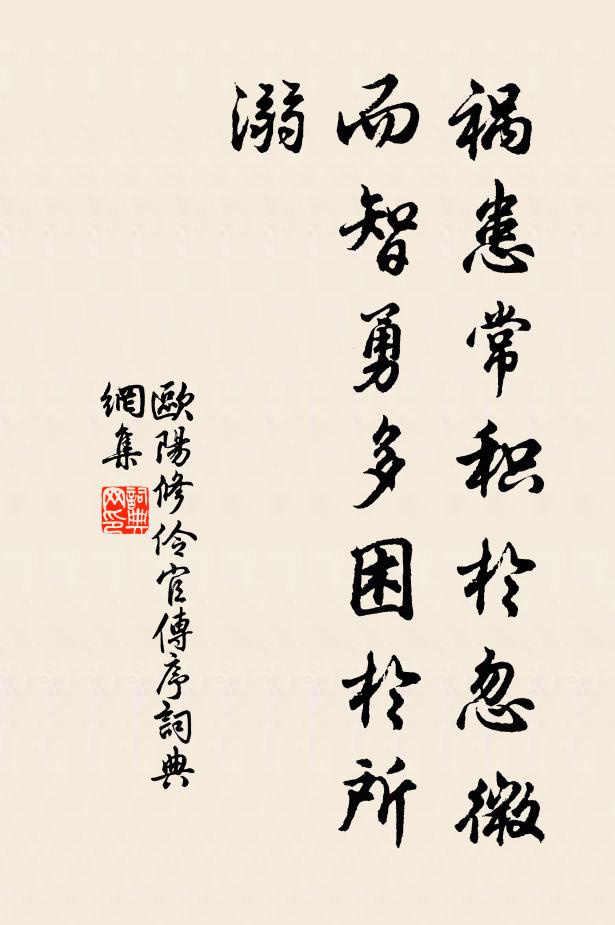 祸患常积於忽微
而智勇多困於所
溺
歐陽修伶官傳序詞典
網集
詞典
网印